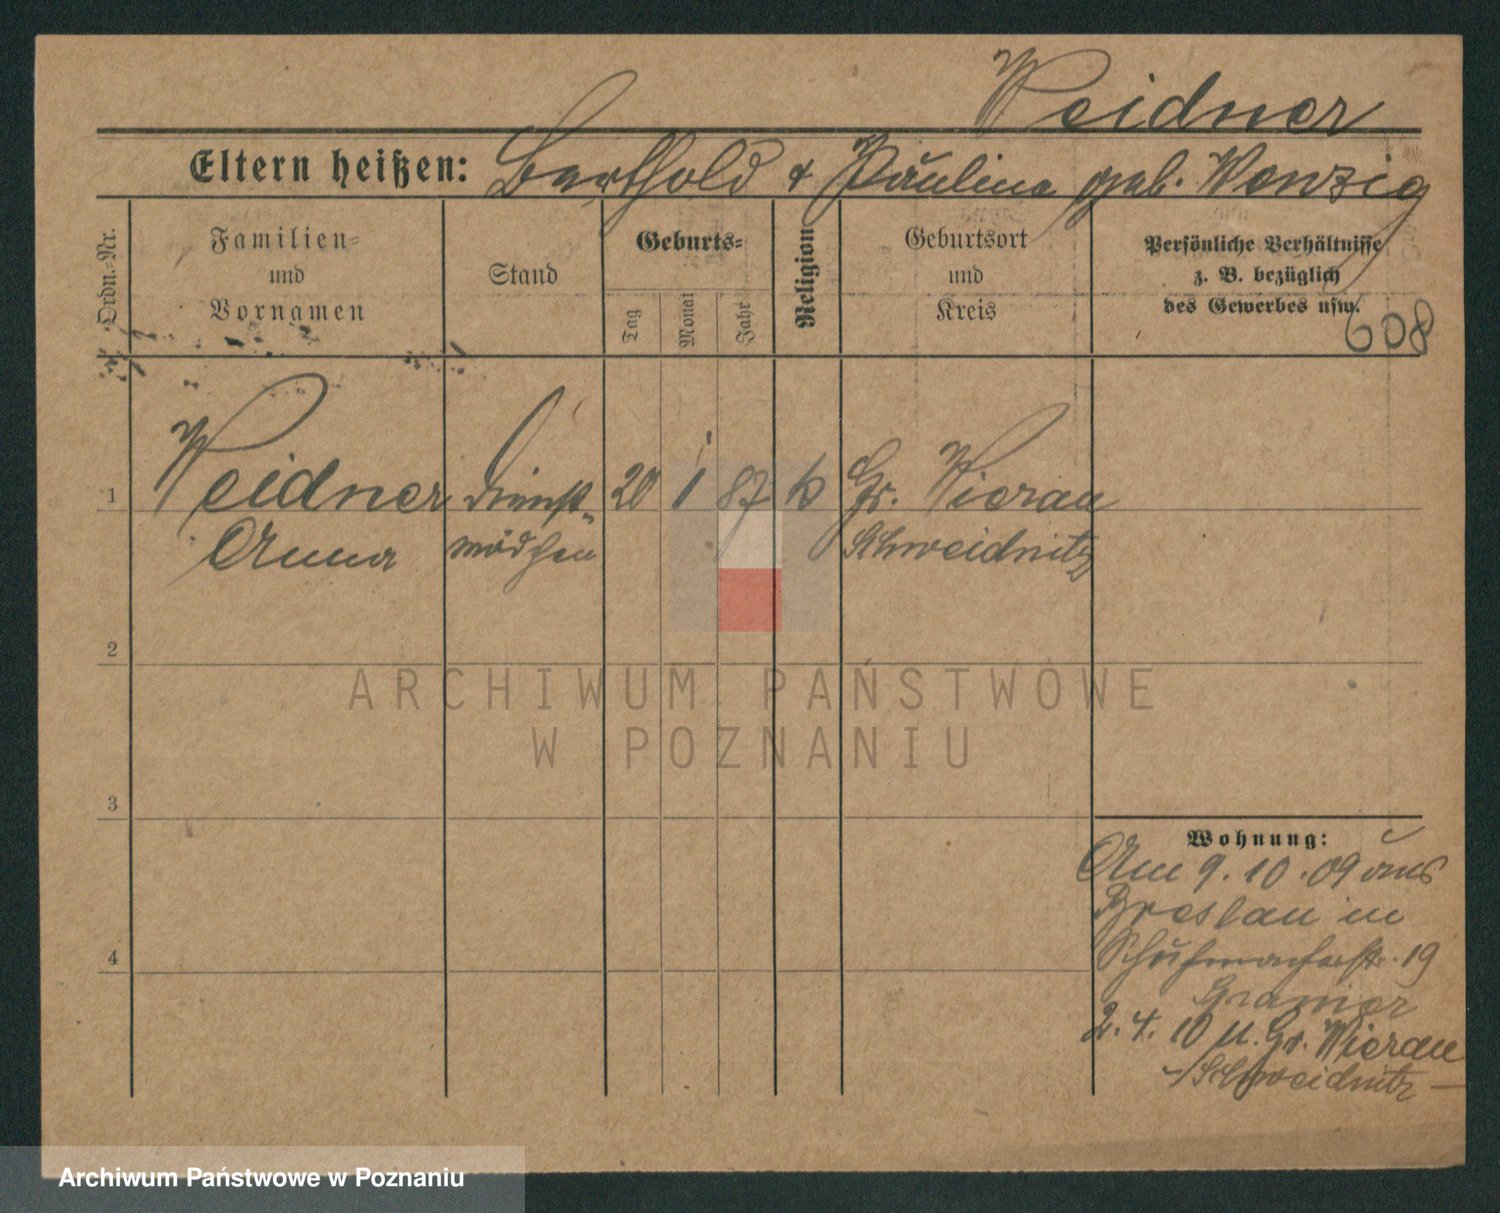 Weidner
Eltern heißen: Berthold & Paulina geb. Wenzig
Ordn.-Nr.
Familien-
und
Vornamen
Stand
Geburts-
Tag
Monat
Jahr
Religion
Geburtsort
und
Kreis
Persönliche Verhältnisse
z. B. bezüglich
des Gewerbes usw.
608
1 Weidner Dienst- 20 1 87 k Gr. Wierau
Anna mädchen Schweidnitz
2
ARCHIWUM PAŃSTWOWE
W POZNANIU
3
Wohnung:
Am 9. 10. 09 aus
Breslau in
Schuhmacherstr. 19
4
2. 4. 10 n. Gr. Wierau
Schweidnitz
Archiwum Państwowe w Poznaniu